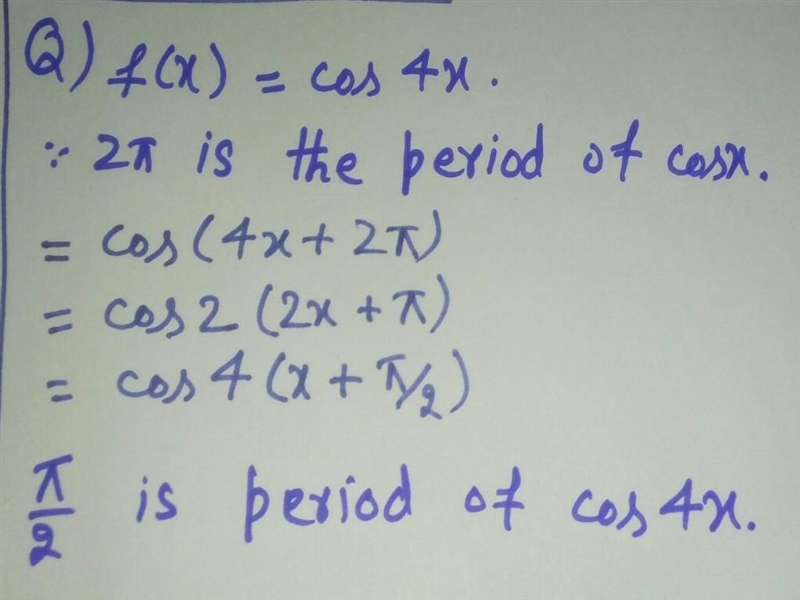 Q) f(x) = cos 4x.
∵ 2π is the period of cosx.
= cos(4x + 2π)
= cos 2 (2x + π)
= cos 4 (x + π/2)
π/2 is period of cos 4x.